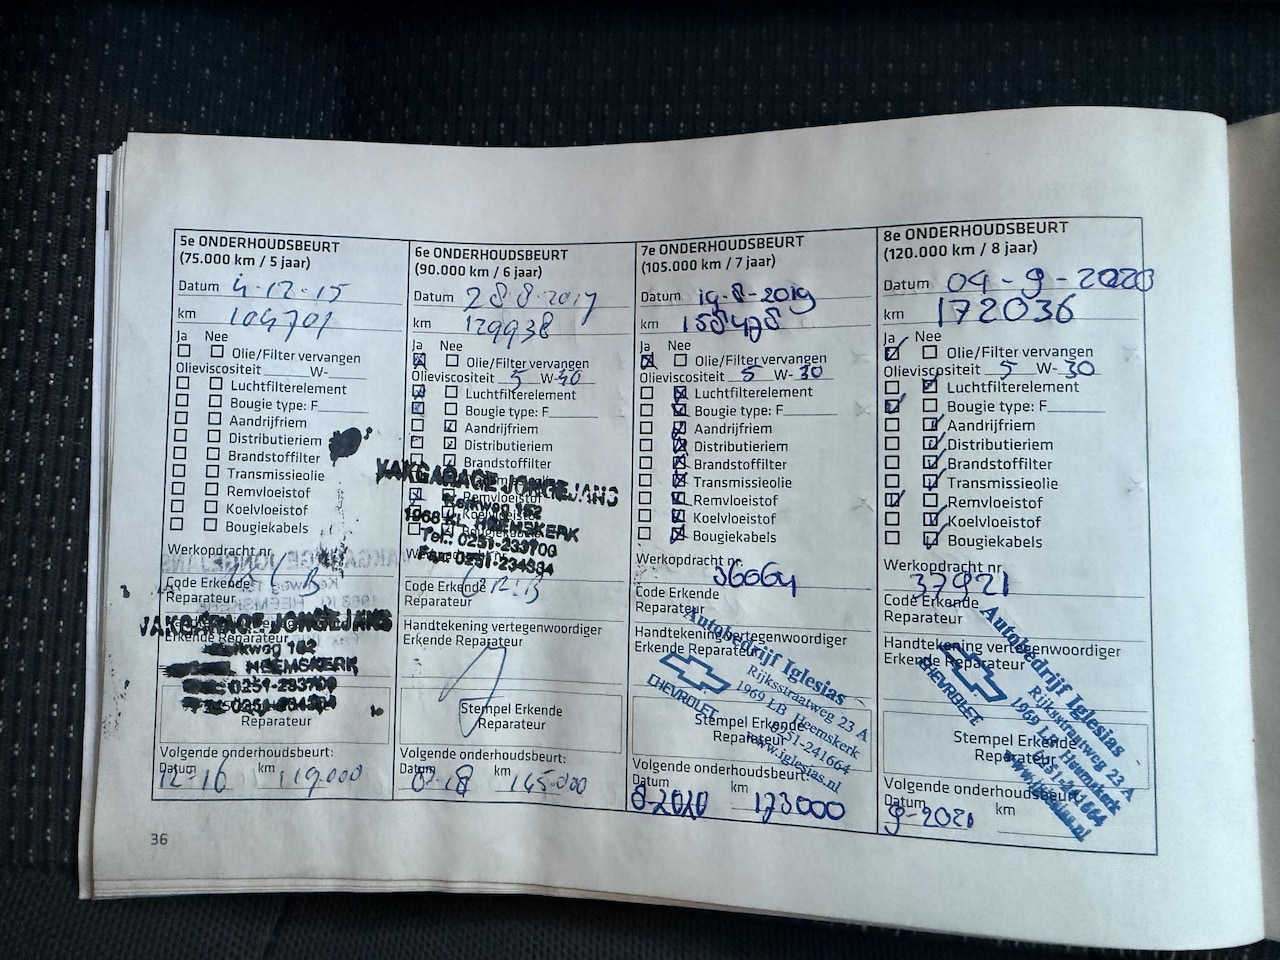 5e ONDERHOUDSBEURT
(75.000 km / 5 jaar)
Datum 4-12-15
km 104701
Ja Nee
Olie/Filter vervangen
Olieviscositeit W-
Luchtfilterelement
Bougie type: F
Aandrijfriem
Distributieriem
Brandstoffilter
Transmissieolie
Remvloeistof
Koelvloeistof
Bougiekabels
Werkopdracht nr.
Code Erkende
Reparateur
VAKGARAGE JONGEJANS
Erkende Reparateur
HEEMSKERK
0251-233700
0251-234384
Reparateur
Volgende onderhoudsbeurt:
Datum km
12-16 119.000
36
6e ONDERHOUDSBEURT
(90.000 km / 6 jaar)
Datum 28 8 2017
km 129938
Ja Nee
Olie/Filter vervangen
Olieviscositeit 5 W-40
Luchtfilterelement
Bougie type: F
Aandrijfriem
Distributieriem
Brandstoffilter
VAKGARAGE JONGEJANS
Remvloeistof
Kerkweg 162
Koelvloeistof
1968 KL HEEMSKERK
Bougiekabels
Tel.: 0251-233700
Fax: 0251-234384
Code Erkende
Reparateur
Handtekening vertegenwoordiger
Erkende Reparateur
Stempel Erkende
Reparateur
Volgende onderhoudsbeurt:
Datum km
8-18 145.000
7e ONDERHOUDSBEURT
(105.000 km / 7 jaar)
Datum 19-8-2019
km 158478
Ja Nee
Olie/Filter vervangen
Olieviscositeit 5 W-30
Luchtfilterelement
Bougie type: F
Aandrijfriem
Distributieriem
Brandstoffilter
Transmissieolie
Remvloeistof
Koelvloeistof
Bougiekabels
Werkopdracht nr.
36064
Code Erkende
Reparateur
Handtekening vertegenwoordiger
Erkende Reparateur
Autobedrijf Iglesias
Rijksstraatweg 23 A
1969 LB Heemskerk
0251-241664
www.iglesias.nl
CHEVROLET
Stempel Erkende
Reparateur
Volgende onderhoudsbeurt:
Datum km
8-2020 173000
8e ONDERHOUDSBEURT
(120.000 km / 8 jaar)
Datum 04-9-2020
km 172036
Ja Nee
Olie/Filter vervangen
Olieviscositeit 5 W-30
Luchtfilterelement
Bougie type: F
Aandrijfriem
Distributieriem
Brandstoffilter
Transmissieolie
Remvloeistof
Koelvloeistof
Bougiekabels
Werkopdracht nr.
37921
Code Erkende
Reparateur
Handtekening vertegenwoordiger
Erkende Reparateur
Autobedrijf Iglesias
Rijksstraatweg 23 A
1969 LB Heemskerk
0251-241664
www.iglesias.nl
CHEVROLET
Stempel Erkende
Reparateur
Volgende onderhoudsbeurt:
Datum km
9-2021